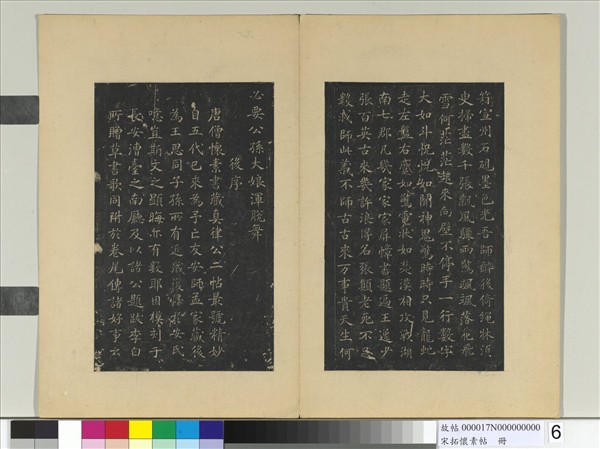 箱宣州石硯墨色光吾師醉後倚繩牀須
臾掃盡數千張飄風驟雨驚颯颯落花飛
雪何茫茫起來向壁不停手一行數字
大如斗怳怳如聞神鬼驚時時只見龍蛇
走左盤右蹙如驚電狀如楚漢相攻戰湖
南七郡凡幾家家家屏幛書題遍王逸少
張百英古來幾許浪得名張顛老死不足
數我師此義不師古古來萬事貴天生何
必要公孫大娘渾脫舞
後序
唐僧懷素書藏真律公二帖最號精妙
自五代已來為予亡友安師孟家藏後
為王思同子孫所有近歲復歸於安氏
噫豈斯文之顯晦亦有數耶因模刻于
長安漕臺之南廳及以諸公題跋李白
所贈草書歌同附於卷尾傳諸好事云
故帖 000017N000000000
宋拓懷素帖 冊
6